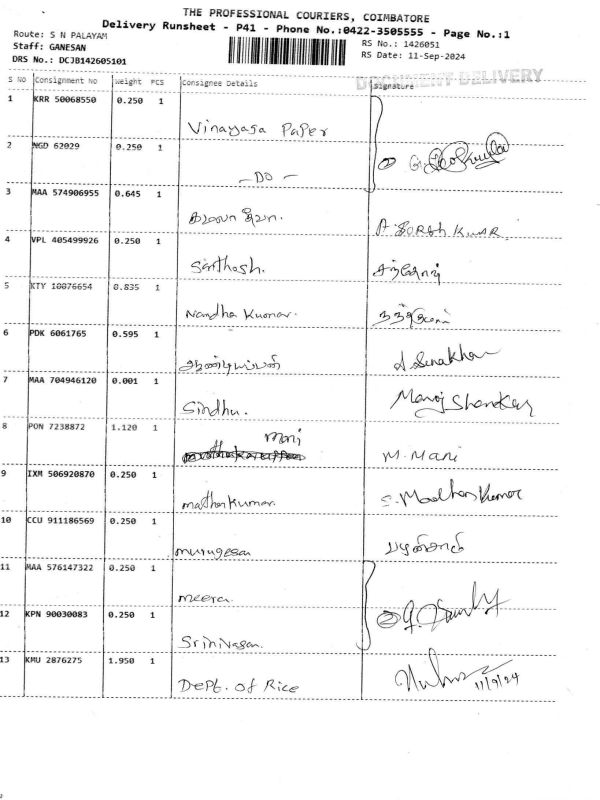 THE PROFESSIONAL COURIERS, COIMBATORE
Delivery Runsheet - P41 - Phone No.:0422-3505555 - Page No.:1
Route: S N PALAYAM
Staff: GANESAN
DRS No.: DCJB142605101
RS No.: 1426051
RS Date: 11-Sep-2024
DOCUMENT DELIVERY
S NO Consignment No Weight PCS Consignee Details Signature
1 KRR 50068550 0.250 1 Vinayaga Paper
2 NGD 62029 0.250 1 - DO - ②
3 MAA 574906955 0.645 1 A. Suresh Kumar
4 VPL 405499926 0.250 1 Santhosh.
5 KTY 10076654 0.835 1 Nandha Kumar.
6 PDK 6061765 0.595 1 ஆண்டியப்பன்
7 MAA 704946120 0.001 1 Sindhu. Manoj Shankar
8 PON 7238872 1.120 1 mani M. Mani
9 IXM 506920870 0.250 1 mathan kumar. S. Madhan Kumar
10 CCU 911186569 0.250 1 murugesan
11 MAA 576147322 0.250 1 meera.
12 KPN 90030083 0.250 1 Srinivasan. ②
13 KMU 2876275 1.950 1 Dept. of Rice 11/9/24